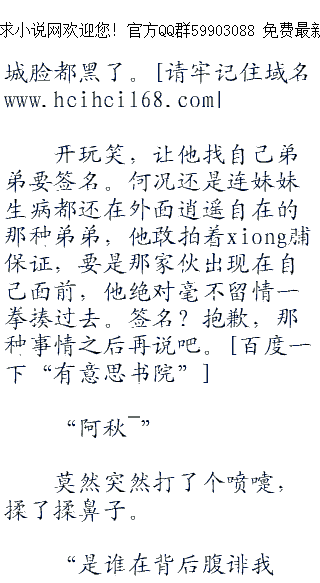 求小说网欢迎您！官方QQ群59903088 免费最新
城脸都黑了。[请牢记住域名
www.hcihci168.com|
开玩笑，让他找自己弟
弟要签名。何况还是连妹妹
生病都还在外面逍遥自在的
那种弟弟，他敢拍着xiong脯
保证，要是那家伙出现在自
己面前，他绝对毫不留情一
拳揍过去。签名？抱歉，那
种事情之后再说吧。[百度一
下“有意思书院”]
“阿秋¯”
莫然突然打了个喷嚏，
揉了揉鼻子。
“是谁在背后腹诽我